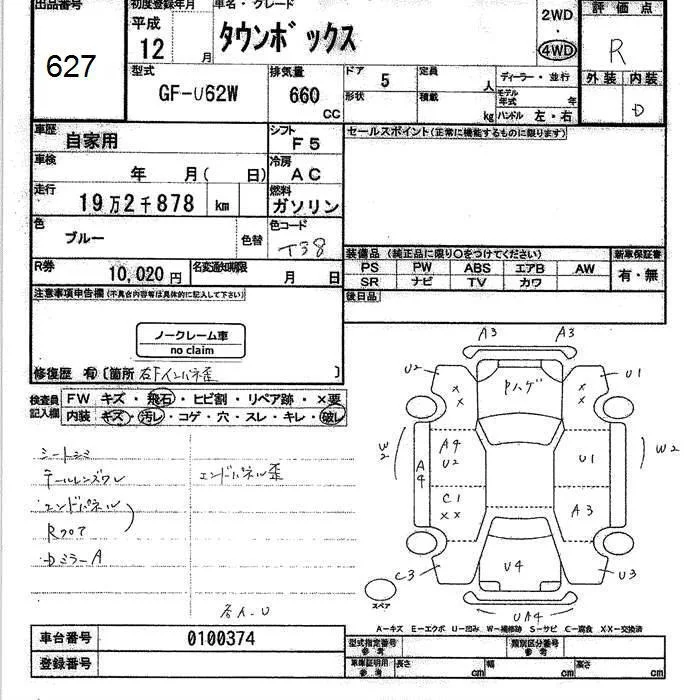 出品番号
627
初度登録年月
平成
12 月
車名・グレード
タウンボックス
2WD
・
4WD
評価点
R
外装 内装
D
型式
GF-U62W
排気量
660
CC
ドア
5
形状
定員
人
積載
kg
ディーラー・並行
モデル年式 年
ハンドル 左・右
車歴
自家用
シフト
F5
セールスポイント(正常に機能するものに限ります)
車検
年 月( 日)
冷房
AC
走行
19万2千878 km
燃料
ガソリン
色
ブルー
色替
色コード
T38
装備品(純正品に限り○をつけてください)
新車保証書
PS PW ABS エアB AW
SR ナビ TV カワ
有・無
後日品
R券
10,020円
名変通知期限
月 日
注意事項申告欄(不具合内容等は具体的に記入して下さい)
ノークレーム車
no claim
修復歴 有〔箇所 右Fインパネ歪 〕
検査員
記入欄
FW キズ・飛石・ヒビ割・リペア跡・×要
内装 キズ・汚レ・コゲ・穴・スレ・キレ・破レ
シートシミ
テールレンズワレ
エンドパネル歪
エンドパネル
Rフロア
DミラーA
A3 A3
U2 U1
××
××
Pハゲ
W2 W2
A4
A4
U2
U1
C1
××
A3
C3 U3
U4
UA4
スペア
A-キズ E-エクボ U-凹み W-補修跡 S-サビ C-腐食 XX-交換済
車台番号
0100374
登録番号
型式指定番号
参考
類別区分番号
参考
車庫証明用
参考
長さ cm
幅 cm
高さ cm